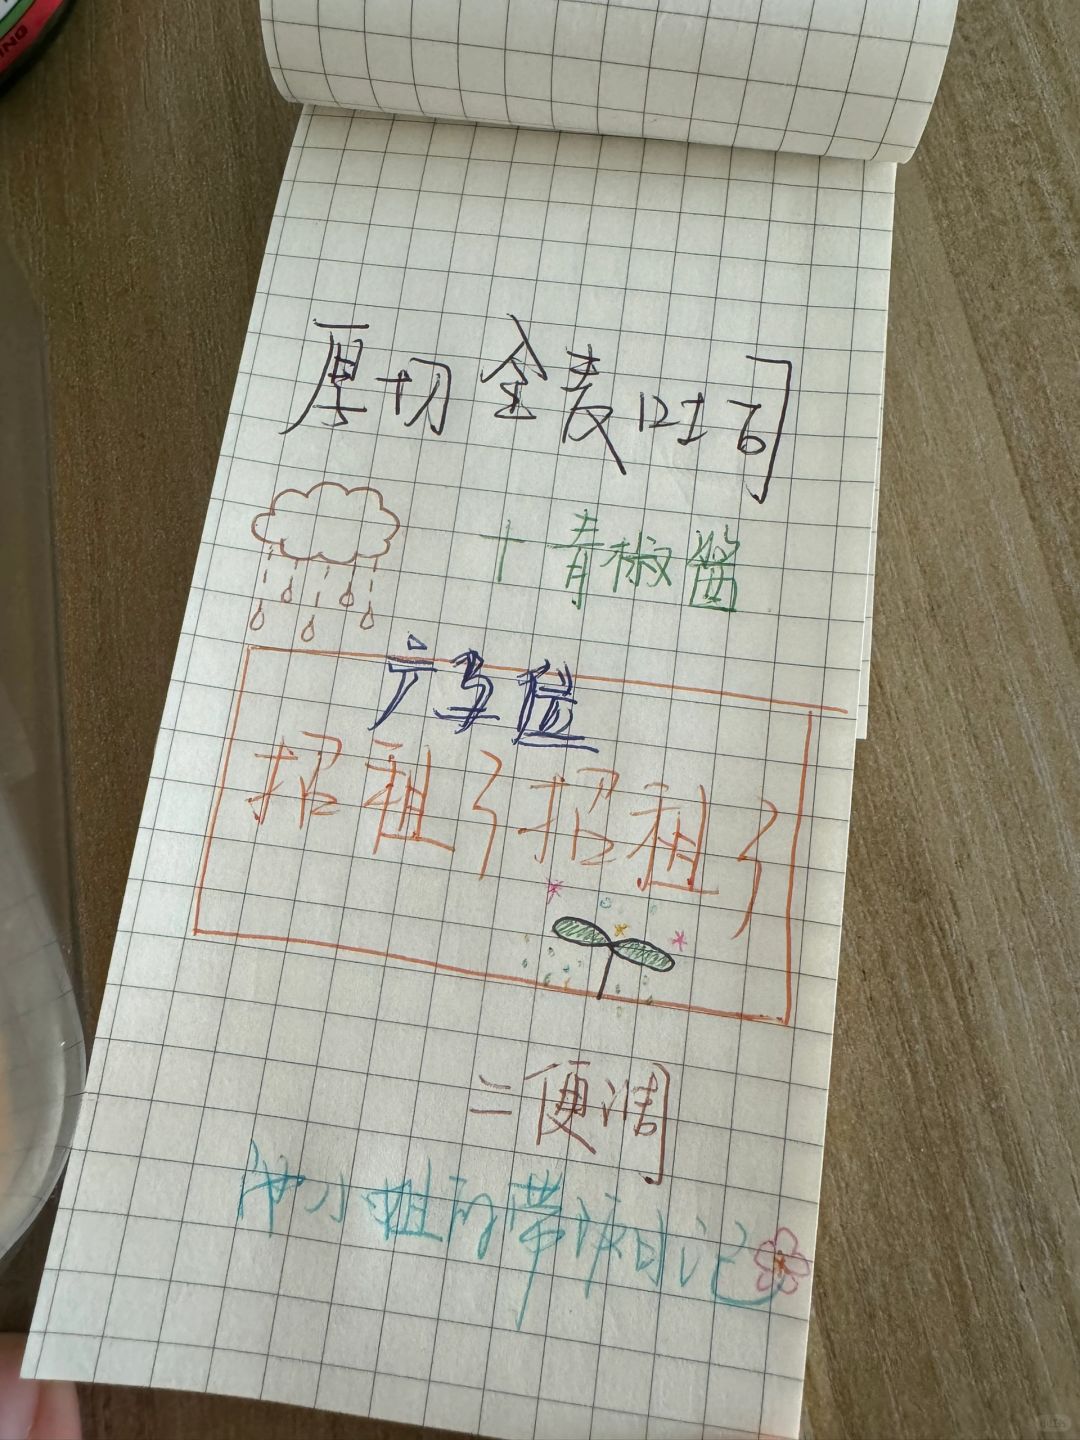 厚切全麦吐司
+青椒酱
广车位
招租了招租了
=便谓
小姐的带疾日记